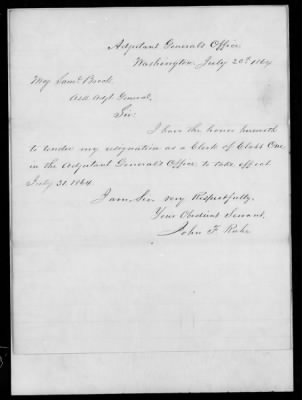 Adjutant General's Office
Washington, July 20th 1864
Maj Saml Breck
Asst Adjt General,
Sir:
I have the honor herewith
to tender my resignation as a Clerk of Class One
in the Adjutant General's Office, to take effect
July 31. 1864
I am, Sir, very Respectfully,
Your Obedient Servant,
John F.